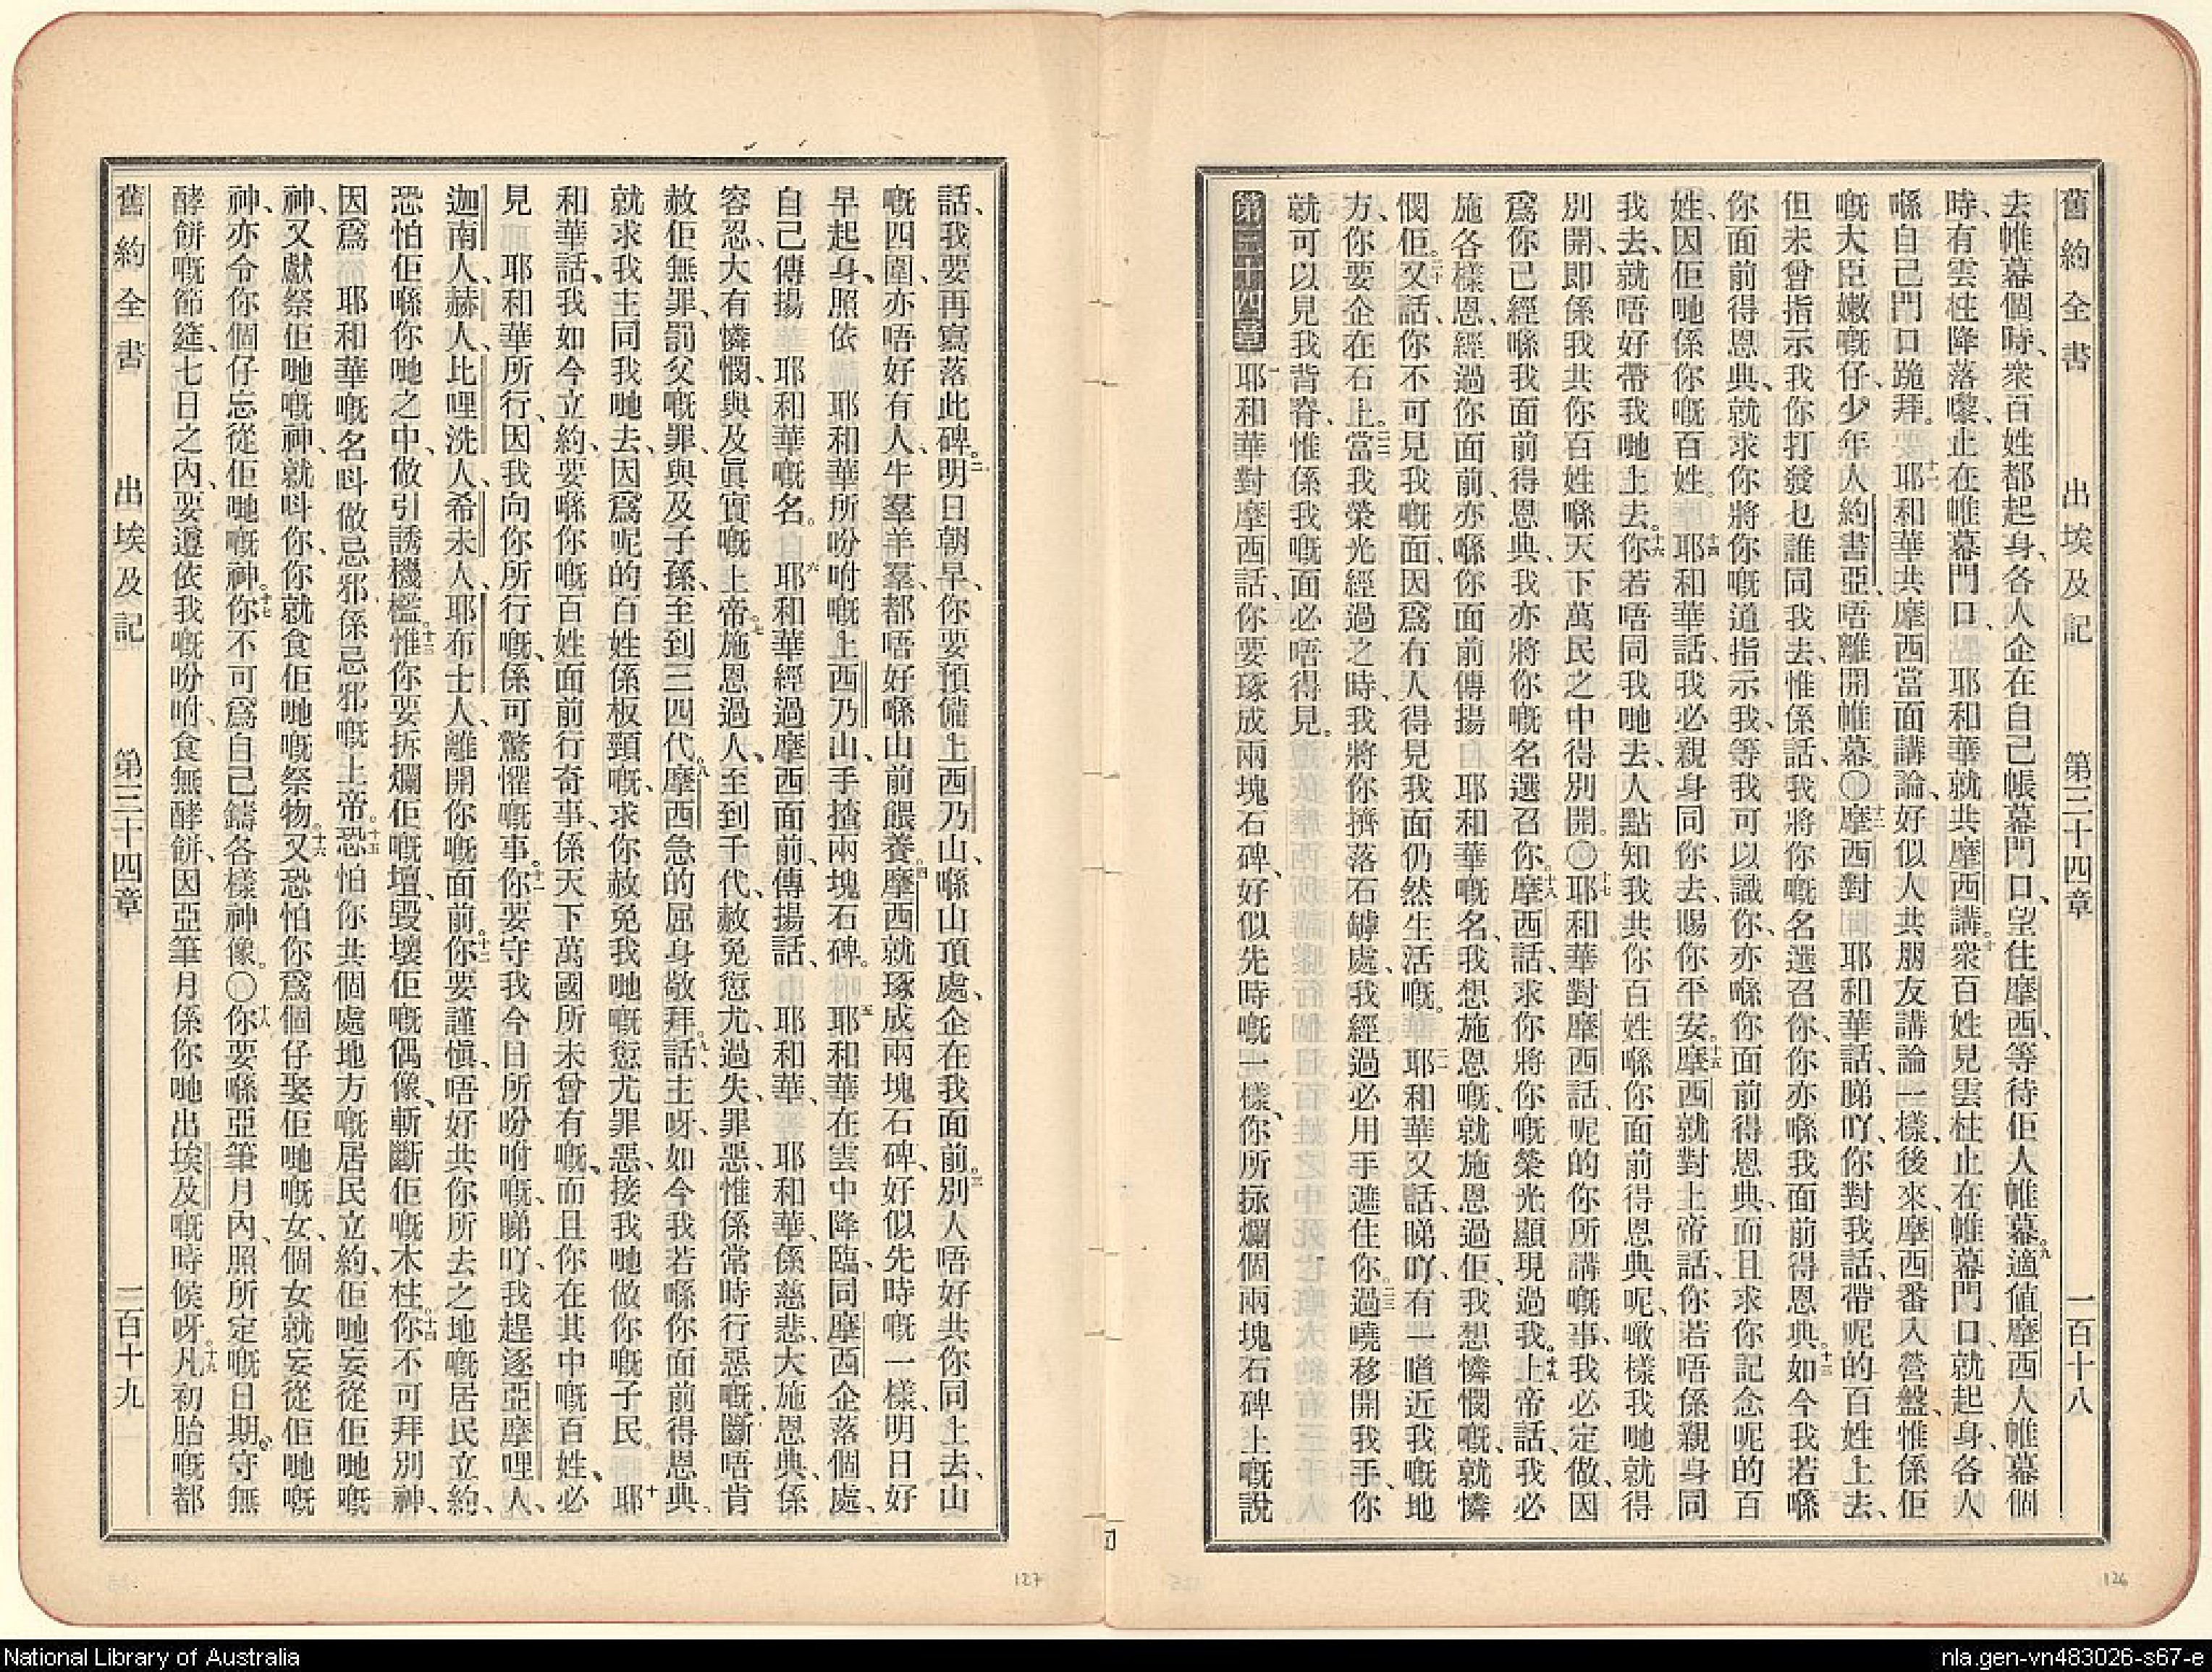 舊約全書 出埃及記 第三十四章 一百十八
去帷幕個時、衆百姓都起身、各人企在自己帳幕門口、望住摩西、等待佢人帷幕。九適值摩西人帷幕個
時、有雲柱降落嚟、止在帷幕門口、耶和華就共摩西講。十衆百姓見雲柱止在帷幕門口、就起身、各人
喺自己門口跪拜。十一耶和華共摩西當面講論、好似人共朋友講論一樣、後來、摩西番入營盤、惟係佢
嘅大臣嫩嘅仔、少年人約書亞、唔離開帷幕。〇十二摩西對 耶和華話、睇吖、你對我話、帶呢的百姓上去、
但未曾指示我、你打發乜誰同我去、惟係話、我將你嘅名選召你、你亦喺我面前得恩典。十三如今我若喺
你面前得恩典、就求你將你嘅道指示我、等我可以識你、亦喺你面前得恩典、而且求你記念呢的百
姓、因佢哋係你嘅百姓。十四耶和華話、我必親身同你去、賜你平安。十五摩西就對上帝話、你若唔係親身同
我去、就唔好帶我哋上去。十六你若唔同我哋去、人點知我共你百姓喺你面前得恩典呢、噉樣我哋就得
別開、即係我共你百姓喺天下萬民之中得別開。〇十七耶和華對摩西話、呢的你所講嘅事、我必定做、因
爲你已經喺我面前得恩典、我亦將你嘅名選召你。十八摩西話、求你將你嘅榮光顯現過我。十九上帝話、我必
施各樣恩、經過你面前、亦喺你面前傳揚 耶和華嘅名、我想施恩嘅、就施恩過佢、我想憐憫嘅、就憐
憫佢。二十又話、你不可見我嘅面、因爲冇人得見我面仍然生活嘅。二一耶和華又話、睇吖、有一噠近我嘅地
方、你要企在石上。二二當我榮光經過之時、我將你擠落石罅處、我經過必用手遮住你。二三過嘵移開我手、你
就可以見我背脊、惟係我嘅面必唔得見。
第三十四章 一耶和華對摩西話、你要琢成兩塊石碑、好似先時嘅一樣、你所揼爛個兩塊石碑上嘅說
話、我要再寫落此碑。二明日朝早、你要預備上西乃山、喺山頂處、企在我面前。三別人唔好共你同上去、山
嘅四圍、亦唔好有人、牛羣羊羣、都唔好喺山前餵養。四摩西就琢成兩塊石碑、好似先時嘅一樣、明日好
早起身、照依 耶和華所吩咐嘅上西乃山、手揸兩塊石碑。五耶和華在雲中降臨、同摩西企落個處、
自己傳揚 耶和華嘅名。六耶和華經過摩西面前、傳揚話、 耶和華、 耶和華、係慈悲、大施恩典、係
容忍、大有憐憫、與及眞實嘅上帝。七施恩過人、至到千代、赦免愆尤、過失、罪惡、惟係常時行惡嘅、斷唔肯
赦佢無罪、罰父嘅罪、與及子孫、至到三四代。八摩西急的屈身敬拜。九話、主呀、如今我若喺你面前得恩典、
就求我主同我哋去、因爲呢的百姓係板頸嘅、求你赦免我哋嘅愆尤罪惡、接我哋做你嘅子民。十耶
和華話、我如今立約、要喺你嘅百姓面前行奇事、係天下萬國所未曾有嘅、而且你在其中嘅百姓、必
見 耶和華所行、因我向你所行嘅、係可驚懼嘅事。十一你要守我今日所吩咐嘅、睇吖、我趕逐亞摩哩人、
迦南人、赫人、比哩洗人、希未人、耶布士人、離開你嘅面前。十二你要謹愼、唔好共你所去之地嘅居民立約、
恐怕佢喺你哋之中、做引誘機檻。十三惟你要拆爛佢嘅壇、毀壞佢嘅偶像、斬斷佢嘅木柱。十四你不可拜別神、
因爲 耶和華嘅名呌做忌邪、係忌邪嘅上帝。十五恐怕你共個處地方嘅居民立約、佢哋妄從佢哋嘅
神、又獻祭佢哋嘅神、就呌你、你就食佢哋嘅祭物。十六又恐怕你爲個仔娶佢哋嘅女、個女就妄從佢哋嘅
神、亦令你個仔忘從佢哋嘅神。十七你不可爲自己鑄各樣神像。〇十八你要喺亞筆月內、照所定嘅日期、守無
酵餅嘅節筵、七日之內、要遵依我嘅吩咐、食無酵餅、因亞筆月係你哋出埃及嘅時候呀。十九凡初胎嘅都
舊約全書 出埃及記 第三十四章 一百十九
126
127
National Library of Australia
nla.gen-vn483026-s67-e